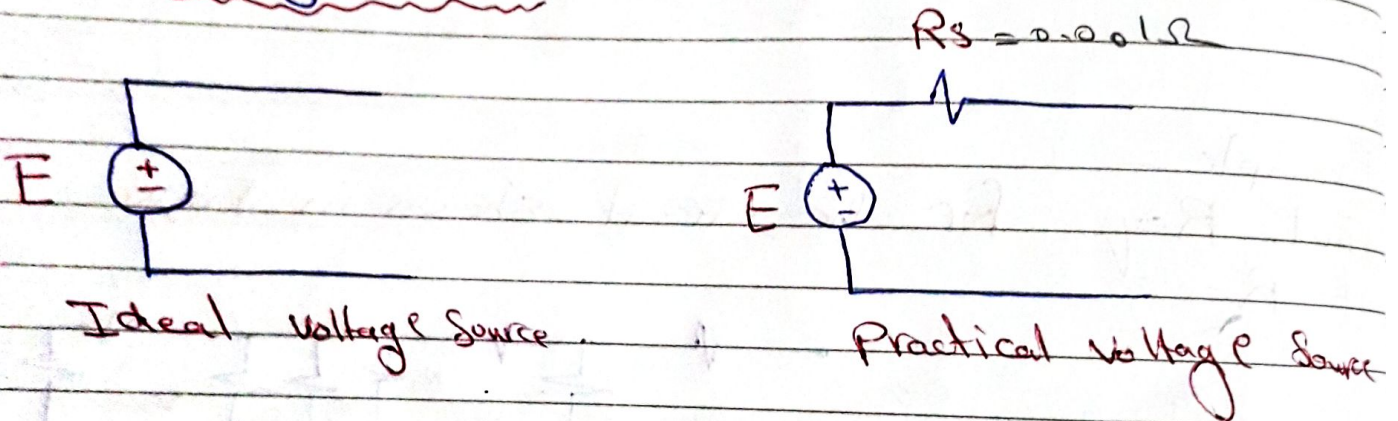 Rs = 0.001Ω
E
+
-
E
+
-
Ideal voltage Source.
Practical voltage Source